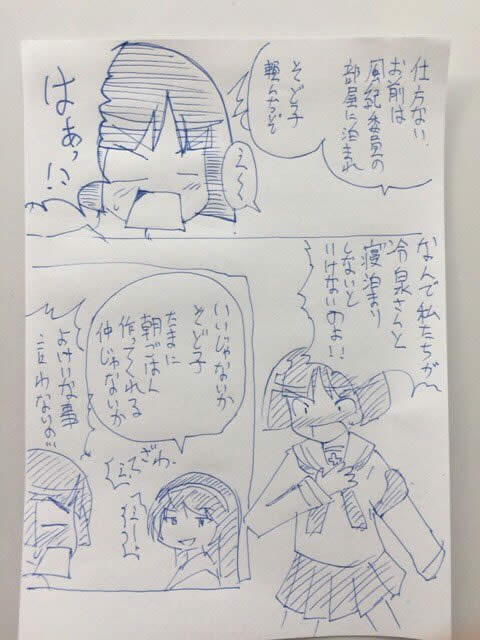 仕方ない
お前は
風紀委員の
部屋に泊まれ
そど子
頼んだぞ
え〜
はぁっ!?
なんで私たちが〜
冷泉さんと
寝泊まり
しないと
いけないのよ!!
いいじゃないか
そど子
たまに
朝ごはん
作ってくれる
仲じゃないか
よけいな事
言わないの…
ざわ